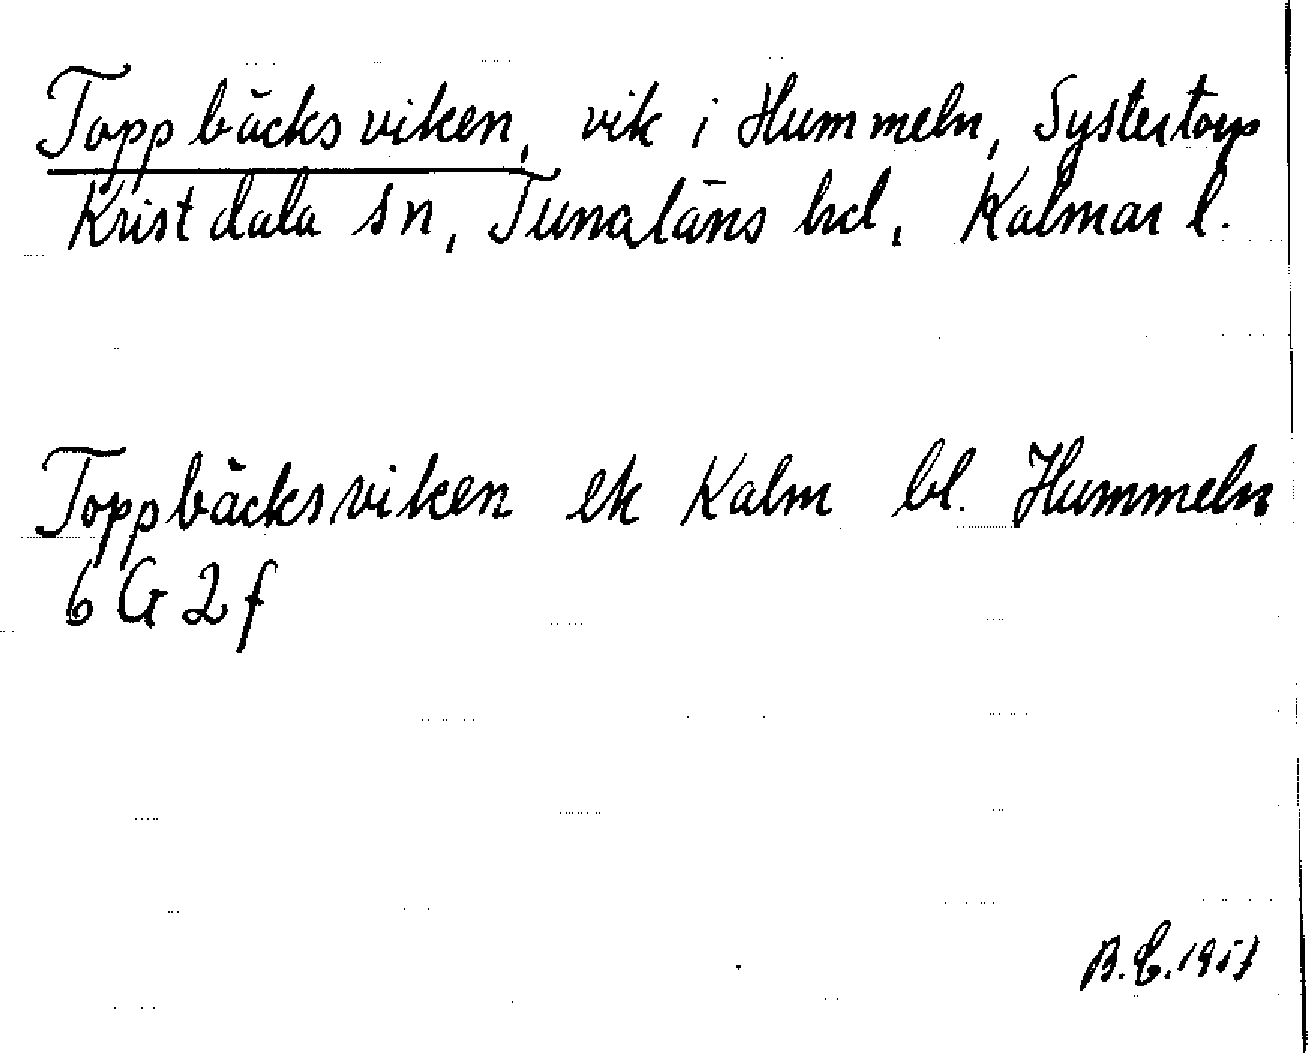 Toppbäcksviken, vik i Hummeln, Systertorp
Kristdala sn, Tunaläns hd, Kalmar l.
Toppbäcksviken ek Kalm bl. Hummeln
6 G 2 f
B.E. 1957